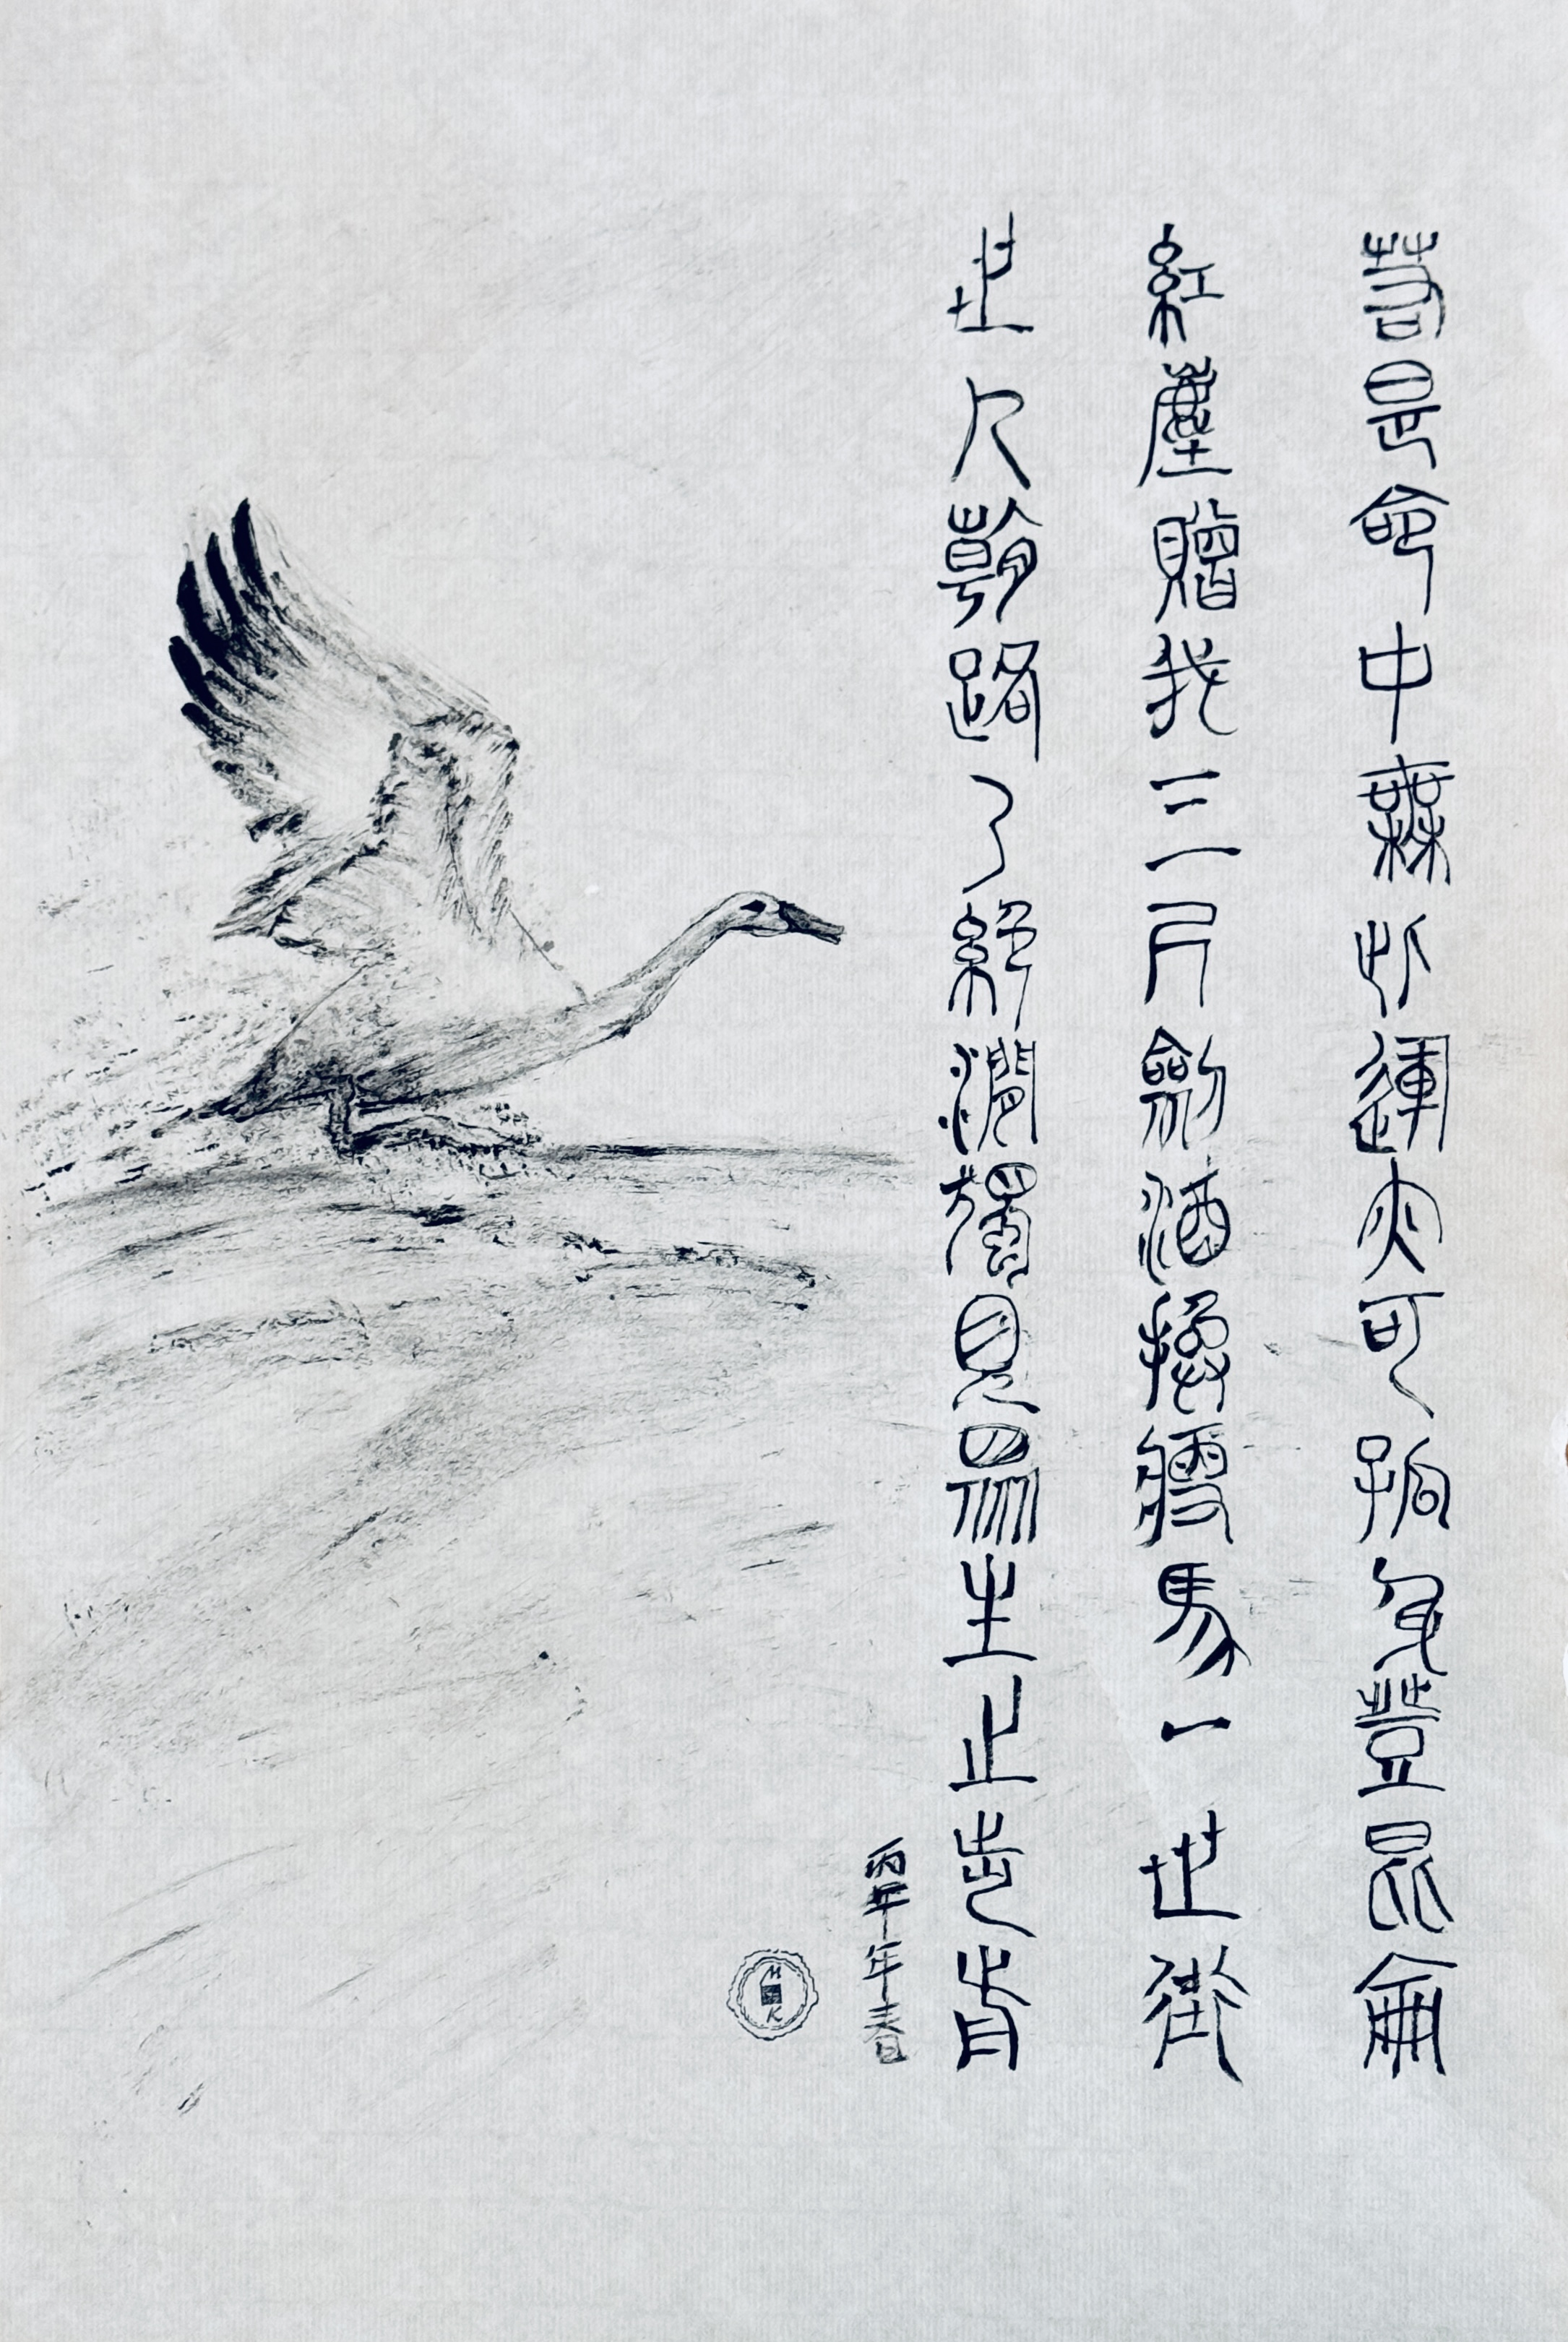 若是命中無此運亦可孤身登昆侖
紅塵贈我三尺劍酒換瘦馬一世街
世人朝路了絕澗獨見眾生止步前
丙午年春
M
K